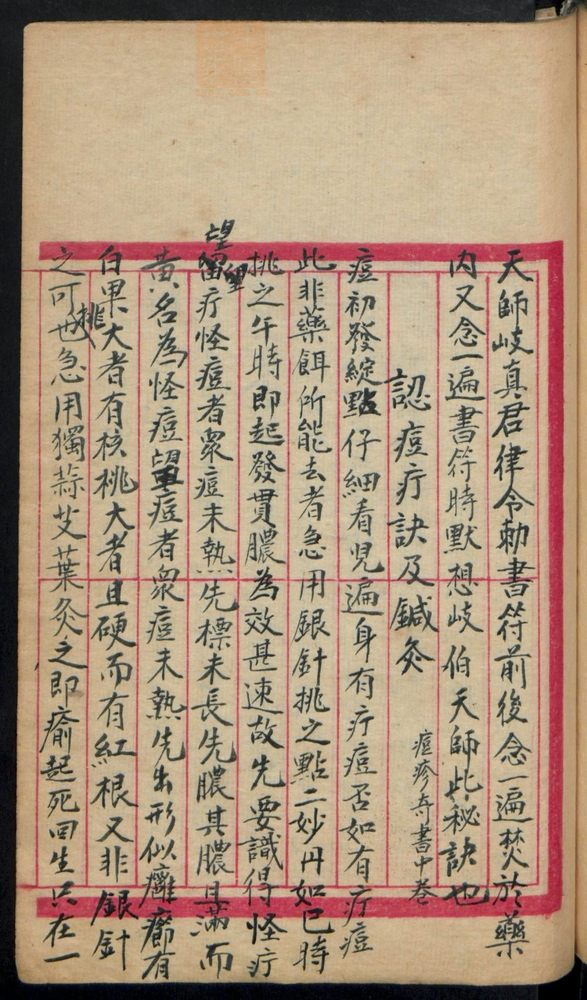 天師岐真君律令勅書符前後念一遍焚於藥
內又念一遍書符時默想岐伯天師此秘訣也
認痘疔訣及鍼灸
痘疹奇書中卷
痘初發綻點仔細看兒遍身有疔痘否如有疔痘
此非藥餌所能去者急用銀針挑之點二妙丹如巳時
挑之午時即起發貫膿為效甚速故先要識得怪疔
望
疔怪痘者衆痘未熟先標未長先膿其膿具滿而
黄名為怪痘望痘者衆痘未熟先出形似癰癤有
白果大者有核桃大者且硬而有紅根又非銀針
挑
之可也急用獨蒜艾葉灸之即瘉起死回生只在一